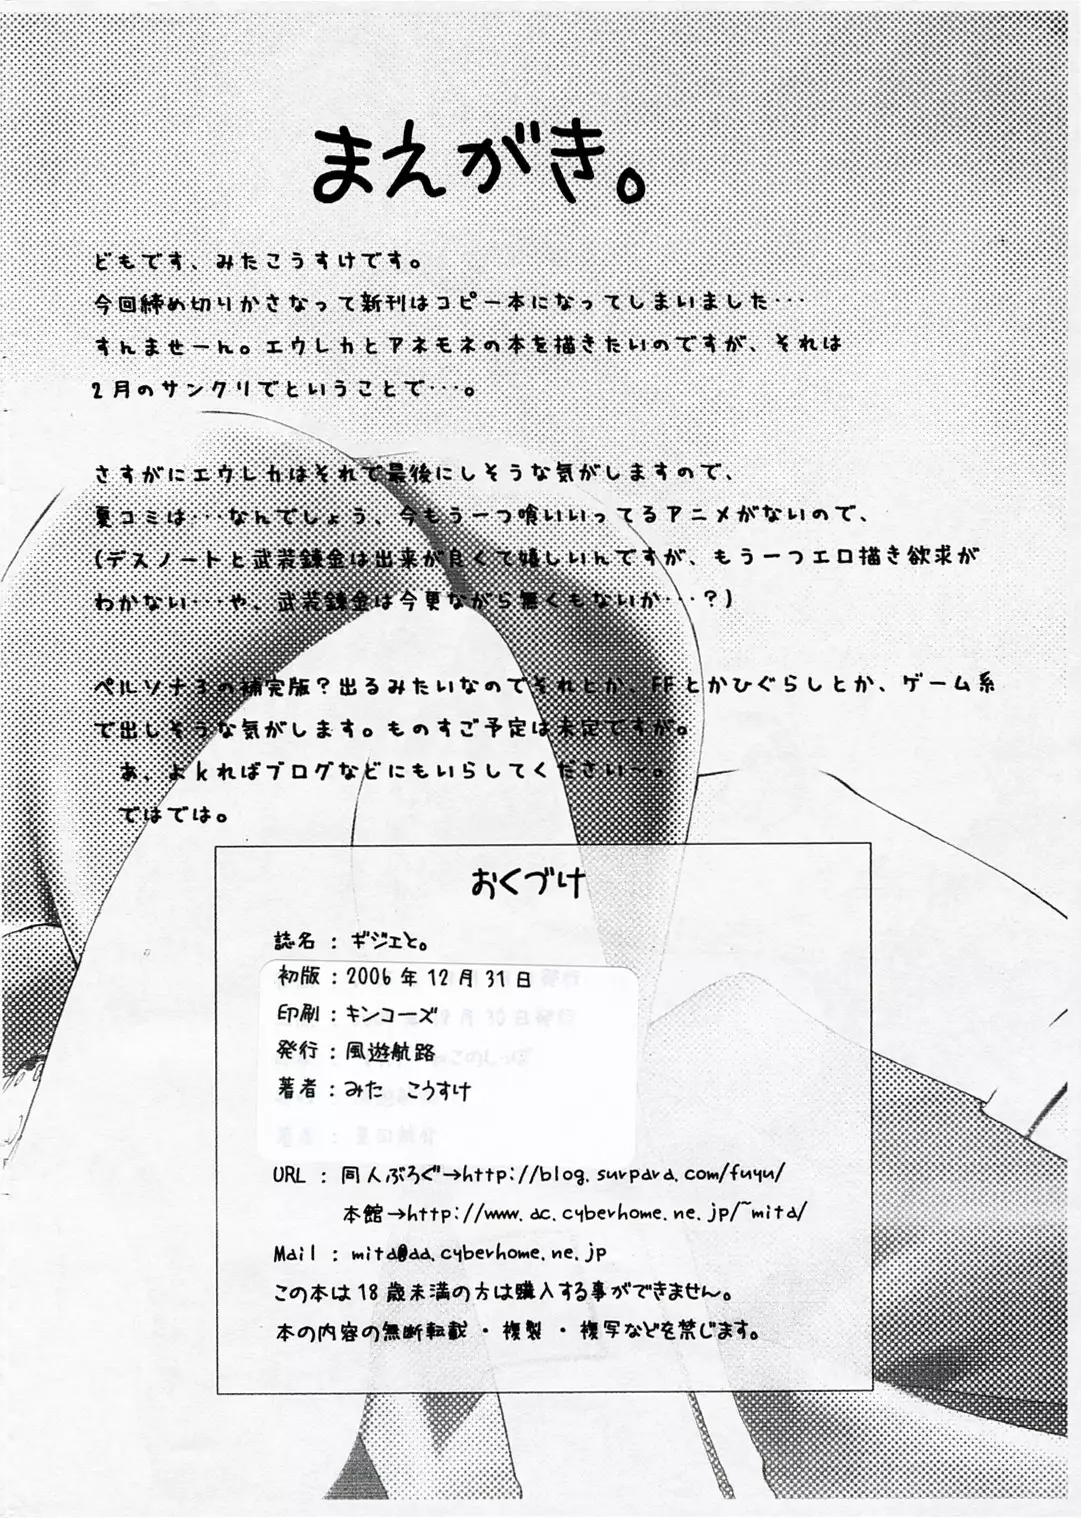 まえがき。
どもです、みたこうすけです。
今回締め切りかさなって新刊はコピー本になってしまいました･･･
すんませーん。エウレカとアネモネの本を描きたいのですが、それは
2月のサンクリでということで･･･。
さすがにエウレカはそれで最後にしそうな気がしますので、
夏コミは･･･なんでしょう、今もう一つ喰いいってるアニメがないので、
(デスノートと武装錬金は出来が良くて嬉しいんですが、もう一つエロ描き欲求が
わかない･･･や、武装錬金は今更ながら無くもないか･･･？)
ペルソナ3の補完版？出るみたいなのでそれとか、FFとかひぐらしとか、ゲーム系
で出しそうな気がします。ものすご予定は未定ですが。
あ、よkればブログなどにもいらしてください～。
ではでは。
おくづけ
誌名 : ギジェと。
初版 : 2006 年 12 月 31 日
印刷 : キンコーズ
発行 : 風遊航路
著者 : みた こうすけ
URL : 同人ぶろぐ→http://blog.surpara.com/fuyu/
本館→http://www.ac.cyberhome.ne.jp/~mita/
Mail : mita@aa.cyberhome.ne.jp
この本は 18 歳未満の方は購入する事ができません。
本の内容の無断転載・複製・複写などを禁じます。